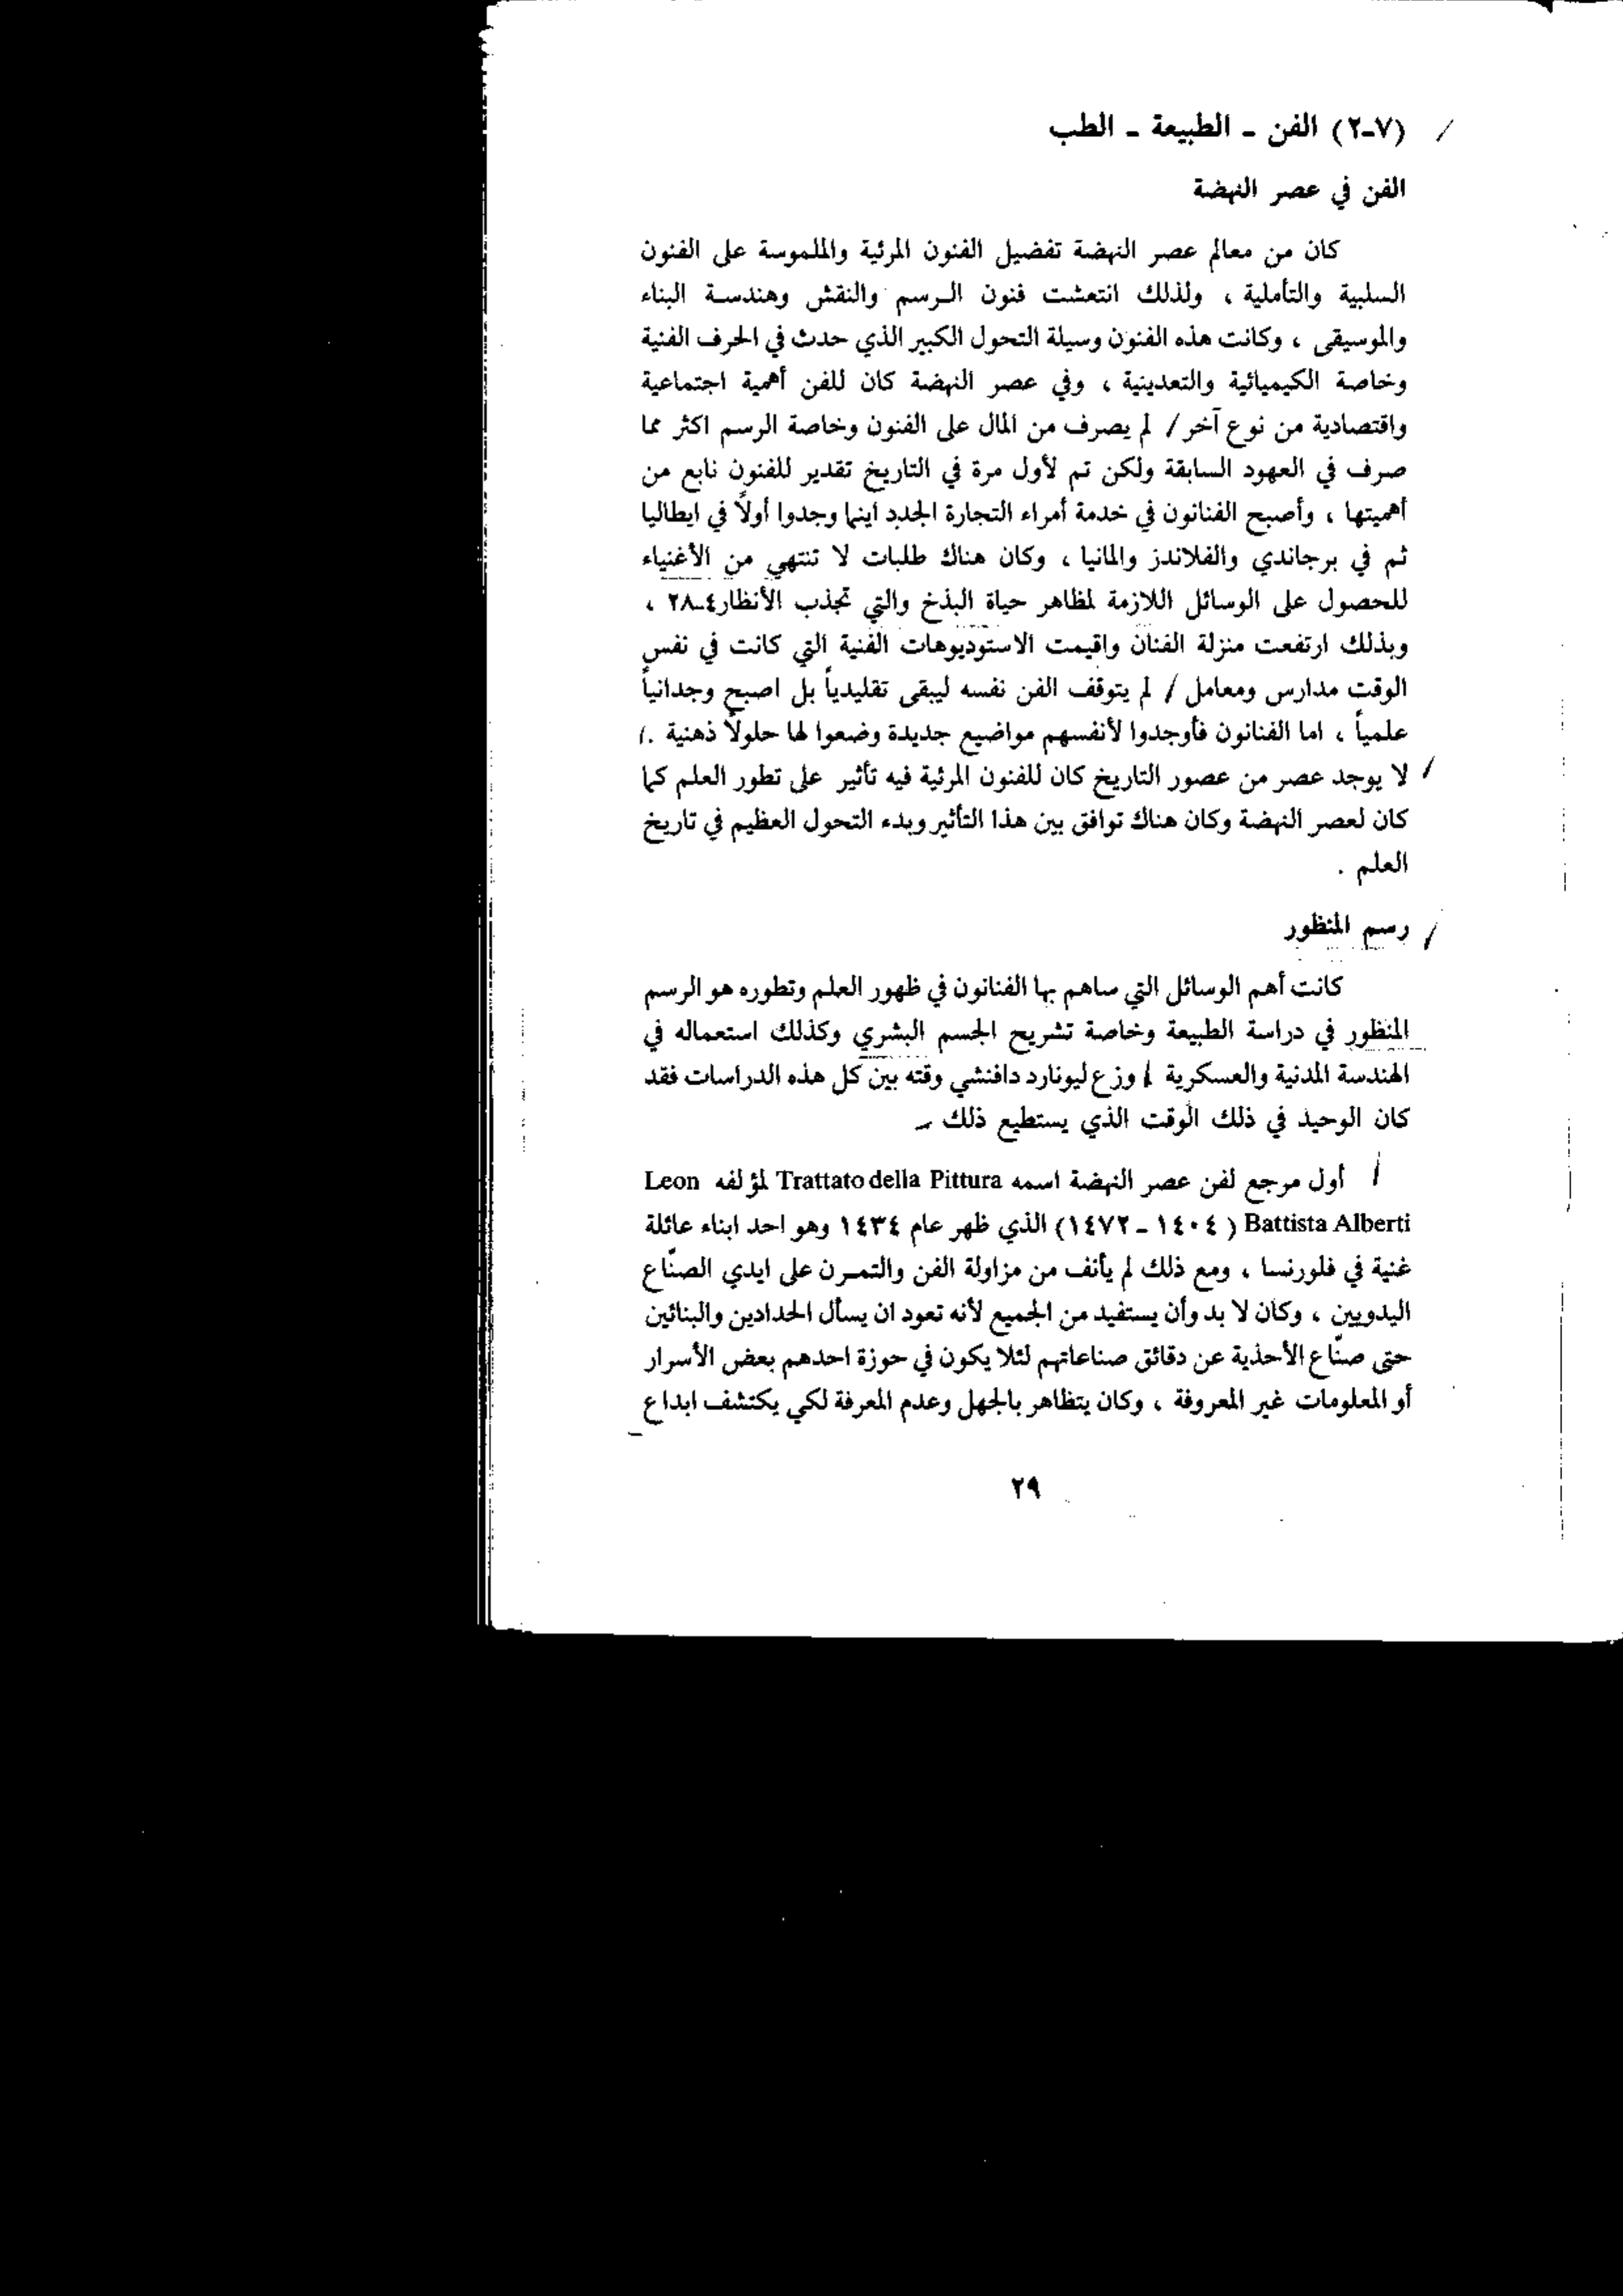 (٧-٢) الفن - الطبيعة - الطب
الفن في عصر النهضة
كان من معالم عصر النهضة تفضيل الفنون المرئية والملموسة على الفنون
السلبية والتأملية ، ولذلك انتعشت فنون الرسم والنقش وهندسة البناء
والموسيقى ، وكانت هذه الفنون وسيلة التحول الكبير الذي حدث في الحرف الفنية
وخاصة الكيميائية والتعدينية ، وفي عصر النهضة كان للفن أهمية اجتماعية
واقتصادية من نوع آخر / لم يصرف من المال على الفنون وخاصة الرسم اكثر مما
صرف في العهود السابقة ولكن تم لأول مرة في التاريخ تقدير للفنون نابع من
أهميتها ، وأصبح الفنانون في خدمة أمراء التجارة الجدد اينما وجدوا أولاً في ايطاليا
ثم في برجاندي والفلاندز والمانيا ، وكان هناك طلبات لا تنتهي من الأغنياء
للحصول على الوسائل اللازمة لمظاهر حياة البذخ والتي تجذب الأنظار٤-٢٨ ،
وبذلك ارتفعت منزلة الفنان واقيمت الاستوديوهات الفنية التي كانت في نفس
الوقت مدارس ومعامل / لم يتوقف الفن نفسه ليبقى تقليدياً بل اصبح وجدانياً
علمياً ، اما الفنانون فأوجدوا لأنفسهم مواضيع جديدة وضعوا لها حلولاً ذهنية ./
/ لا يوجد عصر من عصور التاريخ كان للفنون المرئية فيه تأثير على تطور العلم كما
كان لعصر النهضة وكان هناك توافق بين هذا التأثير وبدء التحول العظيم في تاريخ
العلم .
/ رسم المنظور
كانت أهم الوسائل التي ساهم بها الفنانون في ظهور العلم وتطوره هو الرسم
المنظور في دراسة الطبيعة وخاصة تشريح الجسم البشري وكذلك استعماله في
الهندسة المدنية والعسكرية / وزع ليونارد دافنشي وقته بين كل هذه الدراسات فقد
كان الوحيد في ذلك الوقت الذي يستطيع ذلك -
/ أول مرجع لفن عصر النهضة اسمه Trattato della Pittura لمؤلفه Leon
Battista Alberti ( ١٤٠٤ - ١٤٧٢) الذي ظهر عام ١٤٣٤ وهو احد ابناء عائلة
غنية في فلورنسا ، ومع ذلك لم يأنف من مزاولة الفن والتمرن على ايدي الصنّاع
اليدويين ، وكان لا بد وأن يستفيد من الجميع لأنه تعود ان يسأل الحدادين والبنائين
حتى صنّاع الأحذية عن دقائق صناعاتهم لئلا يكون في حوزة احدهم بعض الأسرار
أو المعلومات غير المعروفة ، وكان يتظاهر بالجهل وعدم المعرفة لكي يكتشف ابداع
٢٩